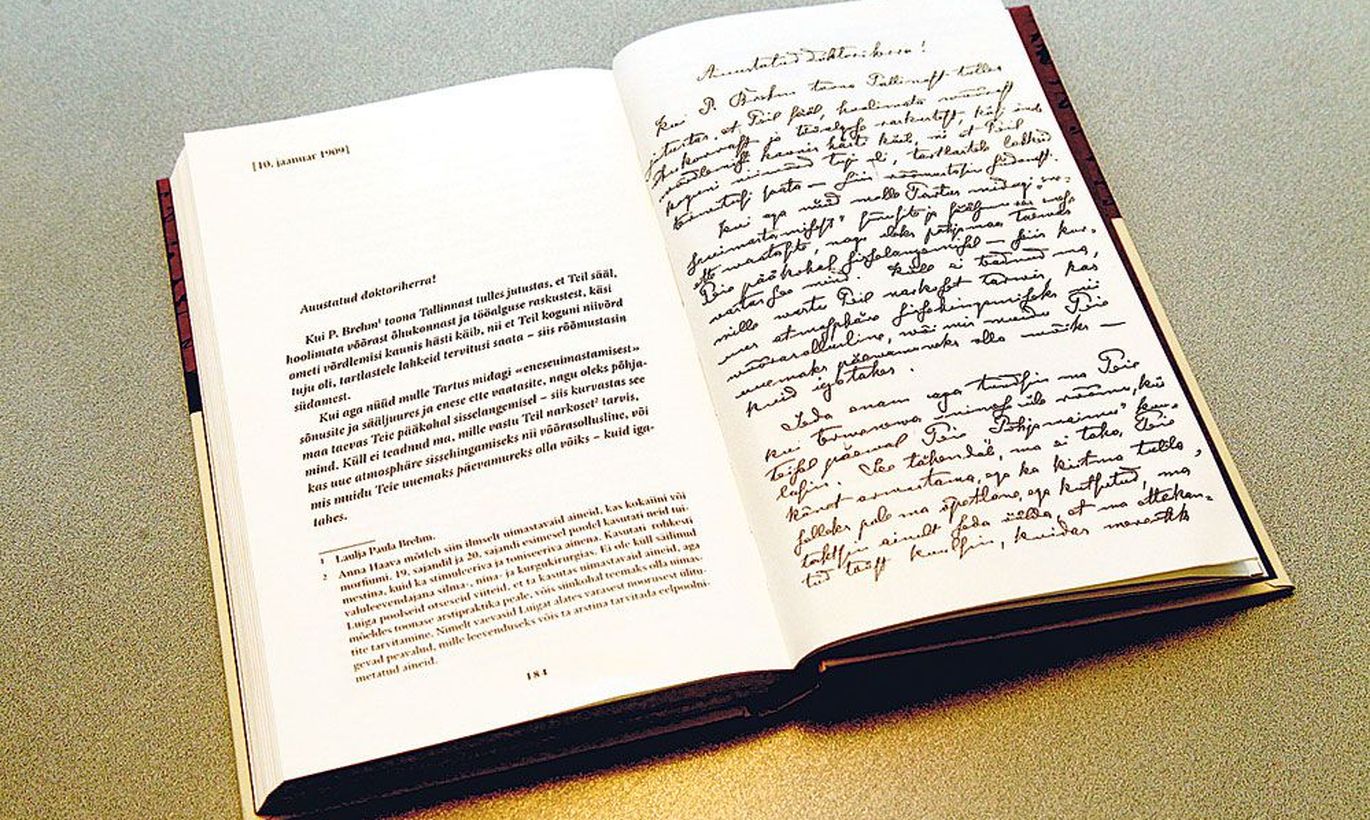 [10. jaanuar 1909]
Auustatud doktoriherra!
Kui P. Brehm¹ toona Tallinnast tulles jutustas, et Teil sääl,
hoolimata võõrast õhukonnast ja tööalguse raskustest, käsi
ometi võrdlemisi kaunis hästi käib, nii et Teil koguni niivõrd
tuju oli, tartlastele lahkeid tervitusi saata – siis rõõmustasin
südamest.
Kui aga nüüd mulle Tartus midagi «eneseuimastamisest»
sõnusite ja sääljuures ja enese ette vaatasite, nagu oleks põhja-
maa taevas Teie pääkohal sisselangemisel – siis kurvastas see
mind. Küll ei teadnud ma, mille vastu Teil narkoset² tarvis,
kas uue atmosphäre sissehingamiseks nii võõrasollusline, või
mis muidu Teie uuemaks päevamureks olla võiks – kuid iga-
tahes.
1 Laulja Paula Brehm.
2 Anna Haava mõtleb siin ilmselt uimastavaid aineid, kas kokaiini või
morfiumi. 19. sajandil ja 20. sajandi esimesel poolel kasutati neid tui-
mestina, kuid ka stimuleeriva ja rahustava ainena. Kasutati rohkesti
valuleevendajana silma-, nina- ja kurgukirurgias. Ei ole küll säilinud
Luiga poolseid otseseid viiteid, et ta kasutas uimastavaid aineid, aga
mõeldes toonase arstipraktika peale, võis siinkohal teemaks olla uimas-
tite tarvitamine. Nimelt vaevasid Luigat alates varasest noorusest
gevad peavalud, mille leevenduseks võis ta arstina tarvitada eelpool-
metatud aineid.
184
Auustatud doktoriherra!
Kui P. Brehm toona Tallinnast tulles
jutustas, et Teil sääl, hoolimata võõrast
õhukonnast ja tööalguse raskustest, käsi ometi
võrdlemisi kaunis hästi käib, nii et Teil
koguni niivõrd tuju oli, tartlastele lahkeid
tervitusi saata – siis rõõmustasin südamest.
Kui aga nüüd mulle Tartus midagi
sõnusite ja sääljuures
ette waatasite, nagu oleks põhjamaa taewas
Teie pääkohal sisselangemisel – siis kur-
wastas see mind. Küll ei teadnud ma,
mille wastu Teil narkoset tarwis, kas
uue atmosphäre sissehingamiseks nii
wõõrasollusline, wõi mis muidu Teie
uuemaks päewamureks olla wõiks –
kuid igatahes.
Seda enam aga tundsin ma Teie
kui
teisel päewal Teie
lasin. See tähendab, ma ei taha, Teie
ega ka kiitma tulla,
selleks pole ma õpetlane, ega
tahtsin ainult seda üelda, et ma